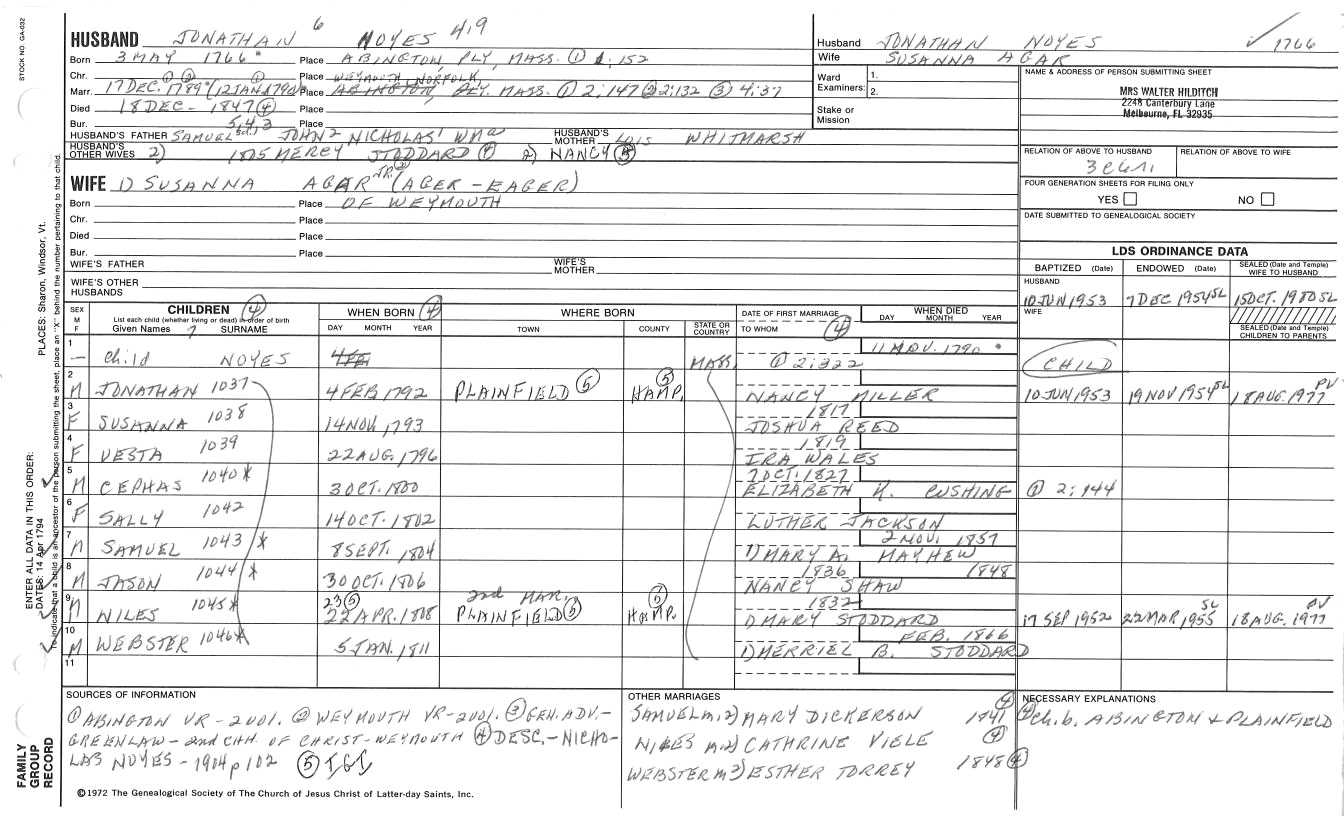 STOCK NO. GA-032
HUSBAND JONATHAN 6 NOYES 419
Born 3 MAY 1766 * Place ABINGTON, PLY, MASS. ① 1:152
Chr. Place WEYMOUTH, NORFOLK,
Marr. 17 DEC. 1789 ① ② (12 JAN 1790) ① Place ABINGTON, PLY. MASS. ① 2:147 ② 2:132 ③ 4:37
Died 18 DEC - 1847 ④ Place
Bur. Place
HUSBAND'S FATHER SAMUEL 5,4,3 JOHN 2 NICHOLAS 1 WM a HUSBAND'S MOTHER LOIS WHITMARSH
HUSBAND'S OTHER WIVES 2) 1805 MERCY STODDARD ④ 2) NANCY ⑤
WIFE 1) SUSANNA AGAR JR. ② (AGER - EAGER)
Born Place OF WEYMOUTH
Chr. Place
Died Place
Bur. Place
WIFE'S FATHER WIFE'S MOTHER
WIFE'S OTHER HUSBANDS
Husband JONATHAN NOYES ✓ 1766
Wife SUSANNA AGAR
Ward Examiners: 1. 2.
Stake or Mission
NAME & ADDRESS OF PERSON SUBMITTING SHEET
MRS WALTER HILDITCH
2248 Canterbury Lane
Melbourne, FL 32935
RELATION OF ABOVE TO HUSBAND RELATION OF ABOVE TO WIFE
FOUR GENERATION SHEETS FOR FILING ONLY
YES NO
DATE SUBMITTED TO GENEALOGICAL SOCIETY
LDS ORDINANCE DATA
BAPTIZED (Date) ENDOWED (Date) SEALED (Date and Temple) WIFE TO HUSBAND
HUSBAND
10 JUN 1953 7 DEC 1954 SL 15 OCT. 1980 SL
WIFE
SEALED (Date and Temple) CHILDREN TO PARENTS
SEX M F CHILDREN ④ WHEN BORN ④ WHERE BORN DATE OF FIRST MARRIAGE WHEN DIED
List each child (whether living or dead) in order of birth
Given Names 7 SURNAME DAY MONTH YEAR TOWN COUNTY STATE OR COUNTRY TO WHOM ④ DAY MONTH YEAR
1 — Child NOYES 4 FEB MASS ① 2:322 11 NOV. 1790 * CHILD
2 M JONATHAN 1037 4 FEB 1792 PLAINFIELD ⑤ HAMP. ⑤ NANCY MILLER 10 JUN 1953 19 NOV 1954 SL 18 AUG. 1977 PV
3 F SUSANNA 1038 14 NOV. 1793 1817 JOSHUA REED
4 F VESTA 1039 22 AUG. 1796 1819 IRA WALES
5 M CEPHAS 1040 * 3 OCT. 1800 7 OCT. 1827 ELIZABETH K. CUSHING ① 2:144
6 F SALLY 1042 14 OCT. 1802 LUTHER JACKSON
7 M SAMUEL 1043 * 8 SEPT. 1804 1) MARY A. MAYHEW 2 NOV. 1857
8 M JASON 1044 * 30 OCT. 1806 1836 NANCY SHAW 1848
9 M NILES 1045 * 23 ⑤ 22 APR. 1808 2nd MAR. PLAINFIELD ⑤ HAMP. ⑤ 1832 1) MARY STODDARD 17 SEP 1952 22 MAR 1955 SL 18 AUG. 1977 PV
10 M WEBSTER 1046 * 5 JAN. 1811 1) MERRIEL B. STODDARD FEB. 1866
11
SOURCES OF INFORMATION
① ABINGTON VR - 2 VOL. ② WEYMOUTH VR - 2 VOL. ③ GEN. ADV. -
GREENLAW - 2nd CHH. OF CHRIST - WEYMOUTH ④ DESC. - NICHO-
LAS NOYES - 1904 p 102 ⑤ IGI
OTHER MARRIAGES
SAMUEL m. 2) MARY DICKERSON 1841 ④
NILES m. 2) CATHRINE VIELE ④
WEBSTER m 2) ESTHER TORREY 1848 ④
NECESSARY EXPLANATIONS
④ Ch. b. ABINGTON & PLAINFIELD
©1972 The Genealogical Society of The Church of Jesus Christ of Latter-day Saints, Inc.
FAMILY
GROUP
RECORD
ENTER ALL DATA IN THIS ORDER:
DATES: 14 Apr 1794 PLACES: Sharon, Windsor, Vt.
To indicate that a child is an ancestor of the person submitting the sheet, place an "X" behind the number pertaining to that child.